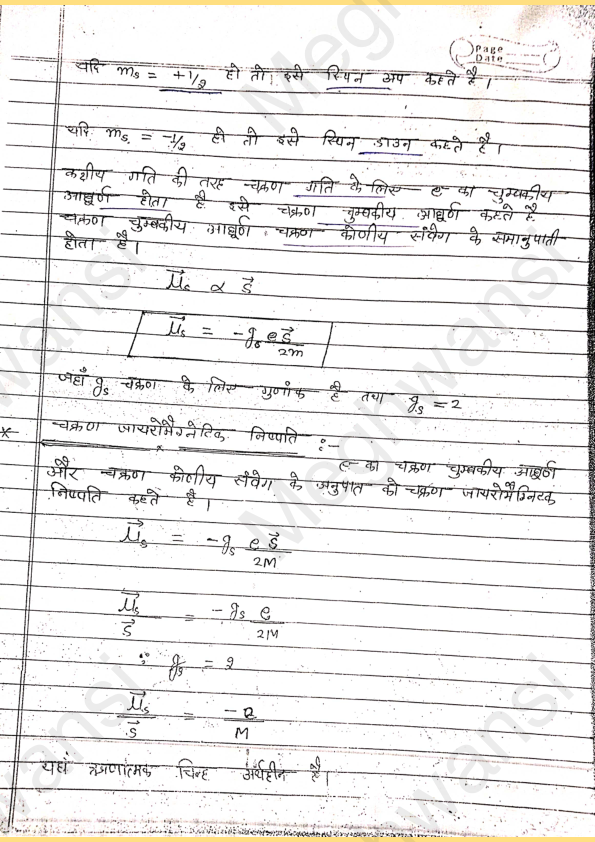 Page
Date
यदि ms = +1/2 हो तो इसे स्पिन अप कहते है।
यदि ms. = -1/2 हो तो इसे स्पिन डाउन कहते है।
कक्षीय गति की तरह चक्रण गति के लिए e- का चुम्बकीय
आघूर्ण होता है इसे चक्रण चुम्बकीय आघूर्ण कहते है
चक्रण चुम्बकीय आघूर्ण चक्रण कोणीय संवेग के समानुपाती
होता है।
μ⃗s ∝ s⃗
μ⃗s = -gs es⃗/2m
जहाँ gs चक्रण के लिए गुणांक है तथा gs = 2
* चक्रण जायरोमैग्नेटिक निष्पति :-
e- का चक्रण चुम्बकीय आघूर्ण
और चक्रण कोणीय संवेग के अनुपात को चक्रण जायरोमैग्निटक
निष्पति कहते है।
μ⃗s = -gs es⃗/2M
μ⃗s/s⃗ = -gs e/2M
∵ gs = 2
μ⃗s/s⃗ = -e/M
यहां ऋणात्मक चिन्ह अर्थहीन है।
Meghwansi
Meghwansi
Meghwansi